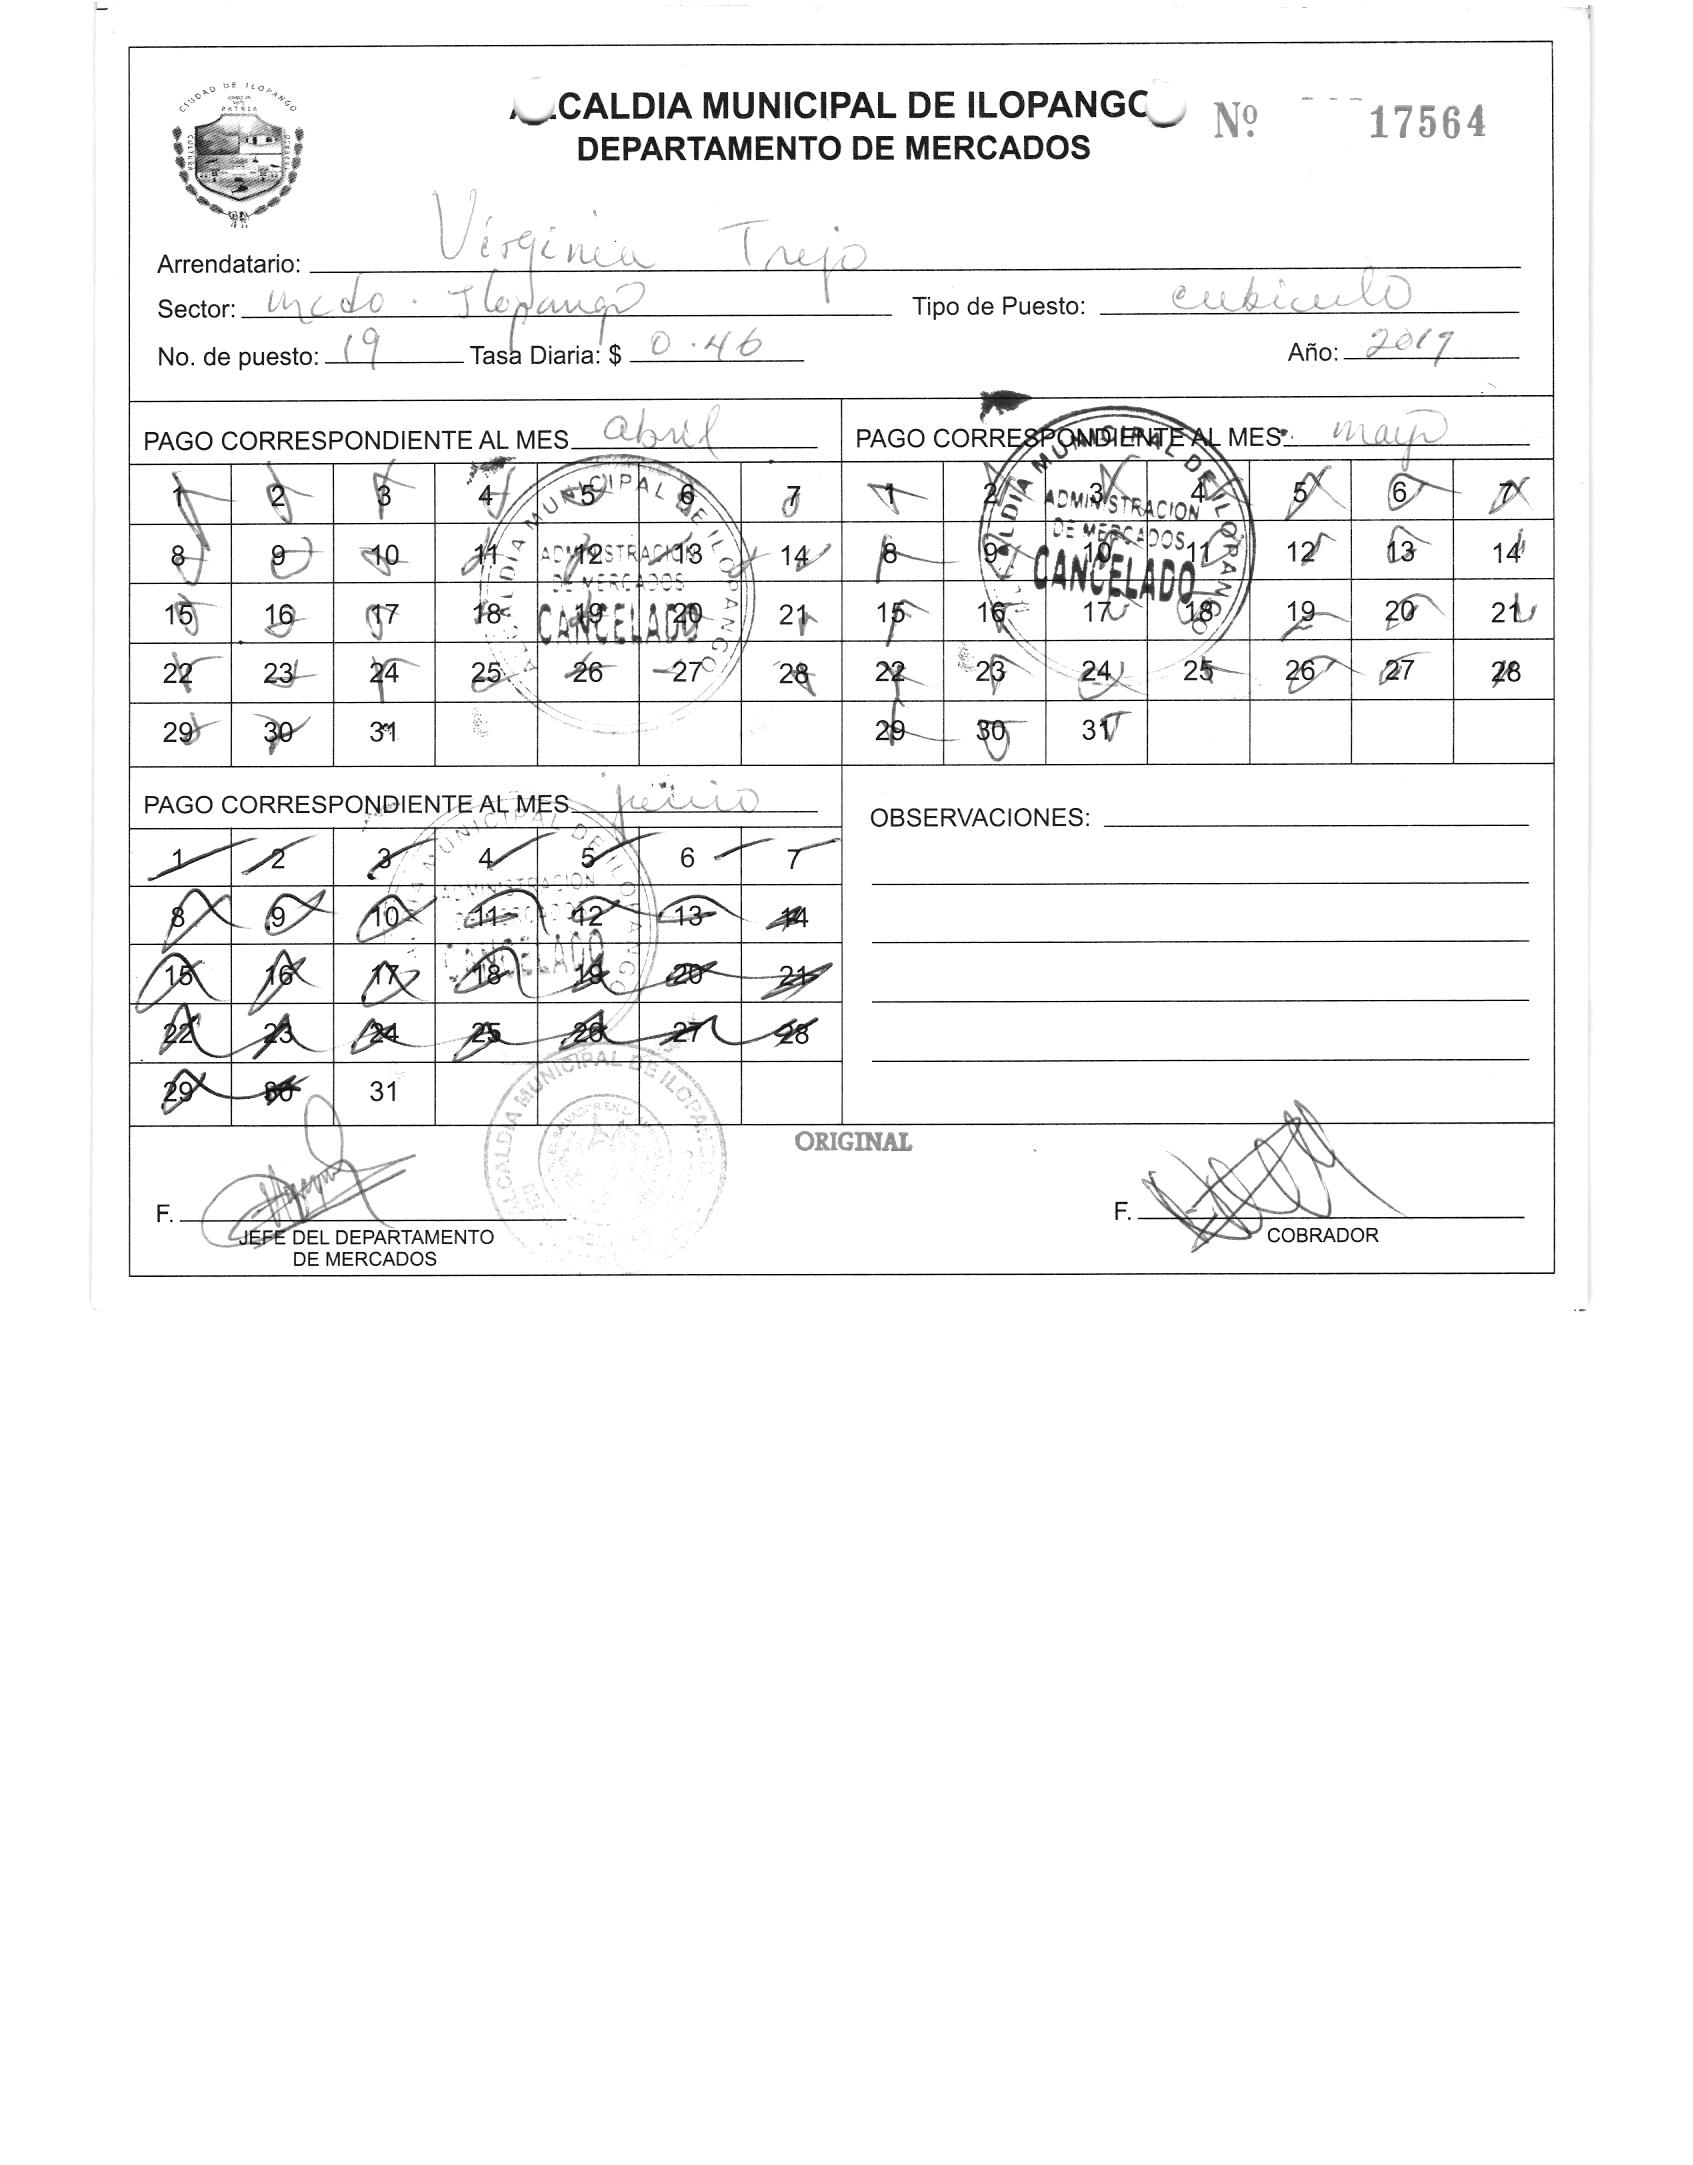 CIUDAD DE ILOPANGO
PATRIA
CULTURA
ALCALDIA MUNICIPAL DE ILOPANGO
Nº 17564
DEPARTAMENTO DE MERCADOS
Arrendatario: Virginia Trejo
Sector: mcdo. Ilopango Tipo de Puesto: cubiculo
No. de puesto: 19 Tasa Diaria: $ 0.46 Año: 2019
PAGO CORRESPONDIENTE AL MES abril
1 2 3 4 5 6 7
8 9 10 11 12 13 14
15 16 17 18 19 20 21
22 23 24 25 26 27 28
29 30 31
ALCALDIA MUNICIPAL DE ILOPANGO
ADMINISTRACION
DE MERCADOS
CANCELADO
PAGO CORRESPONDIENTE AL MES: mayo
1 2 3 4 5 6 7
8 9 10 11 12 13 14
15 16 17 18 19 20 21
22 23 24 25 26 27 28
29 30 31
ALCALDIA MUNICIPAL DE ILOPANGO
ADMINISTRACION
DE MERCADOS
CANCELADO
PAGO CORRESPONDIENTE AL MES junio
1 2 3 4 5 6 7
8 9 10 11 12 13 14
15 16 17 18 19 20 21
22 23 24 25 26 27 28
29 30 31
ALCALDIA MUNICIPAL DE ILOPANGO
ADMINISTRACION
DE MERCADOS
CANCELADO
OBSERVACIONES:
ALCALDIA MUNICIPAL DE ILOPANGO
ORIGINAL
F.
JEFE DEL DEPARTAMENTO
DE MERCADOS
F.
COBRADOR